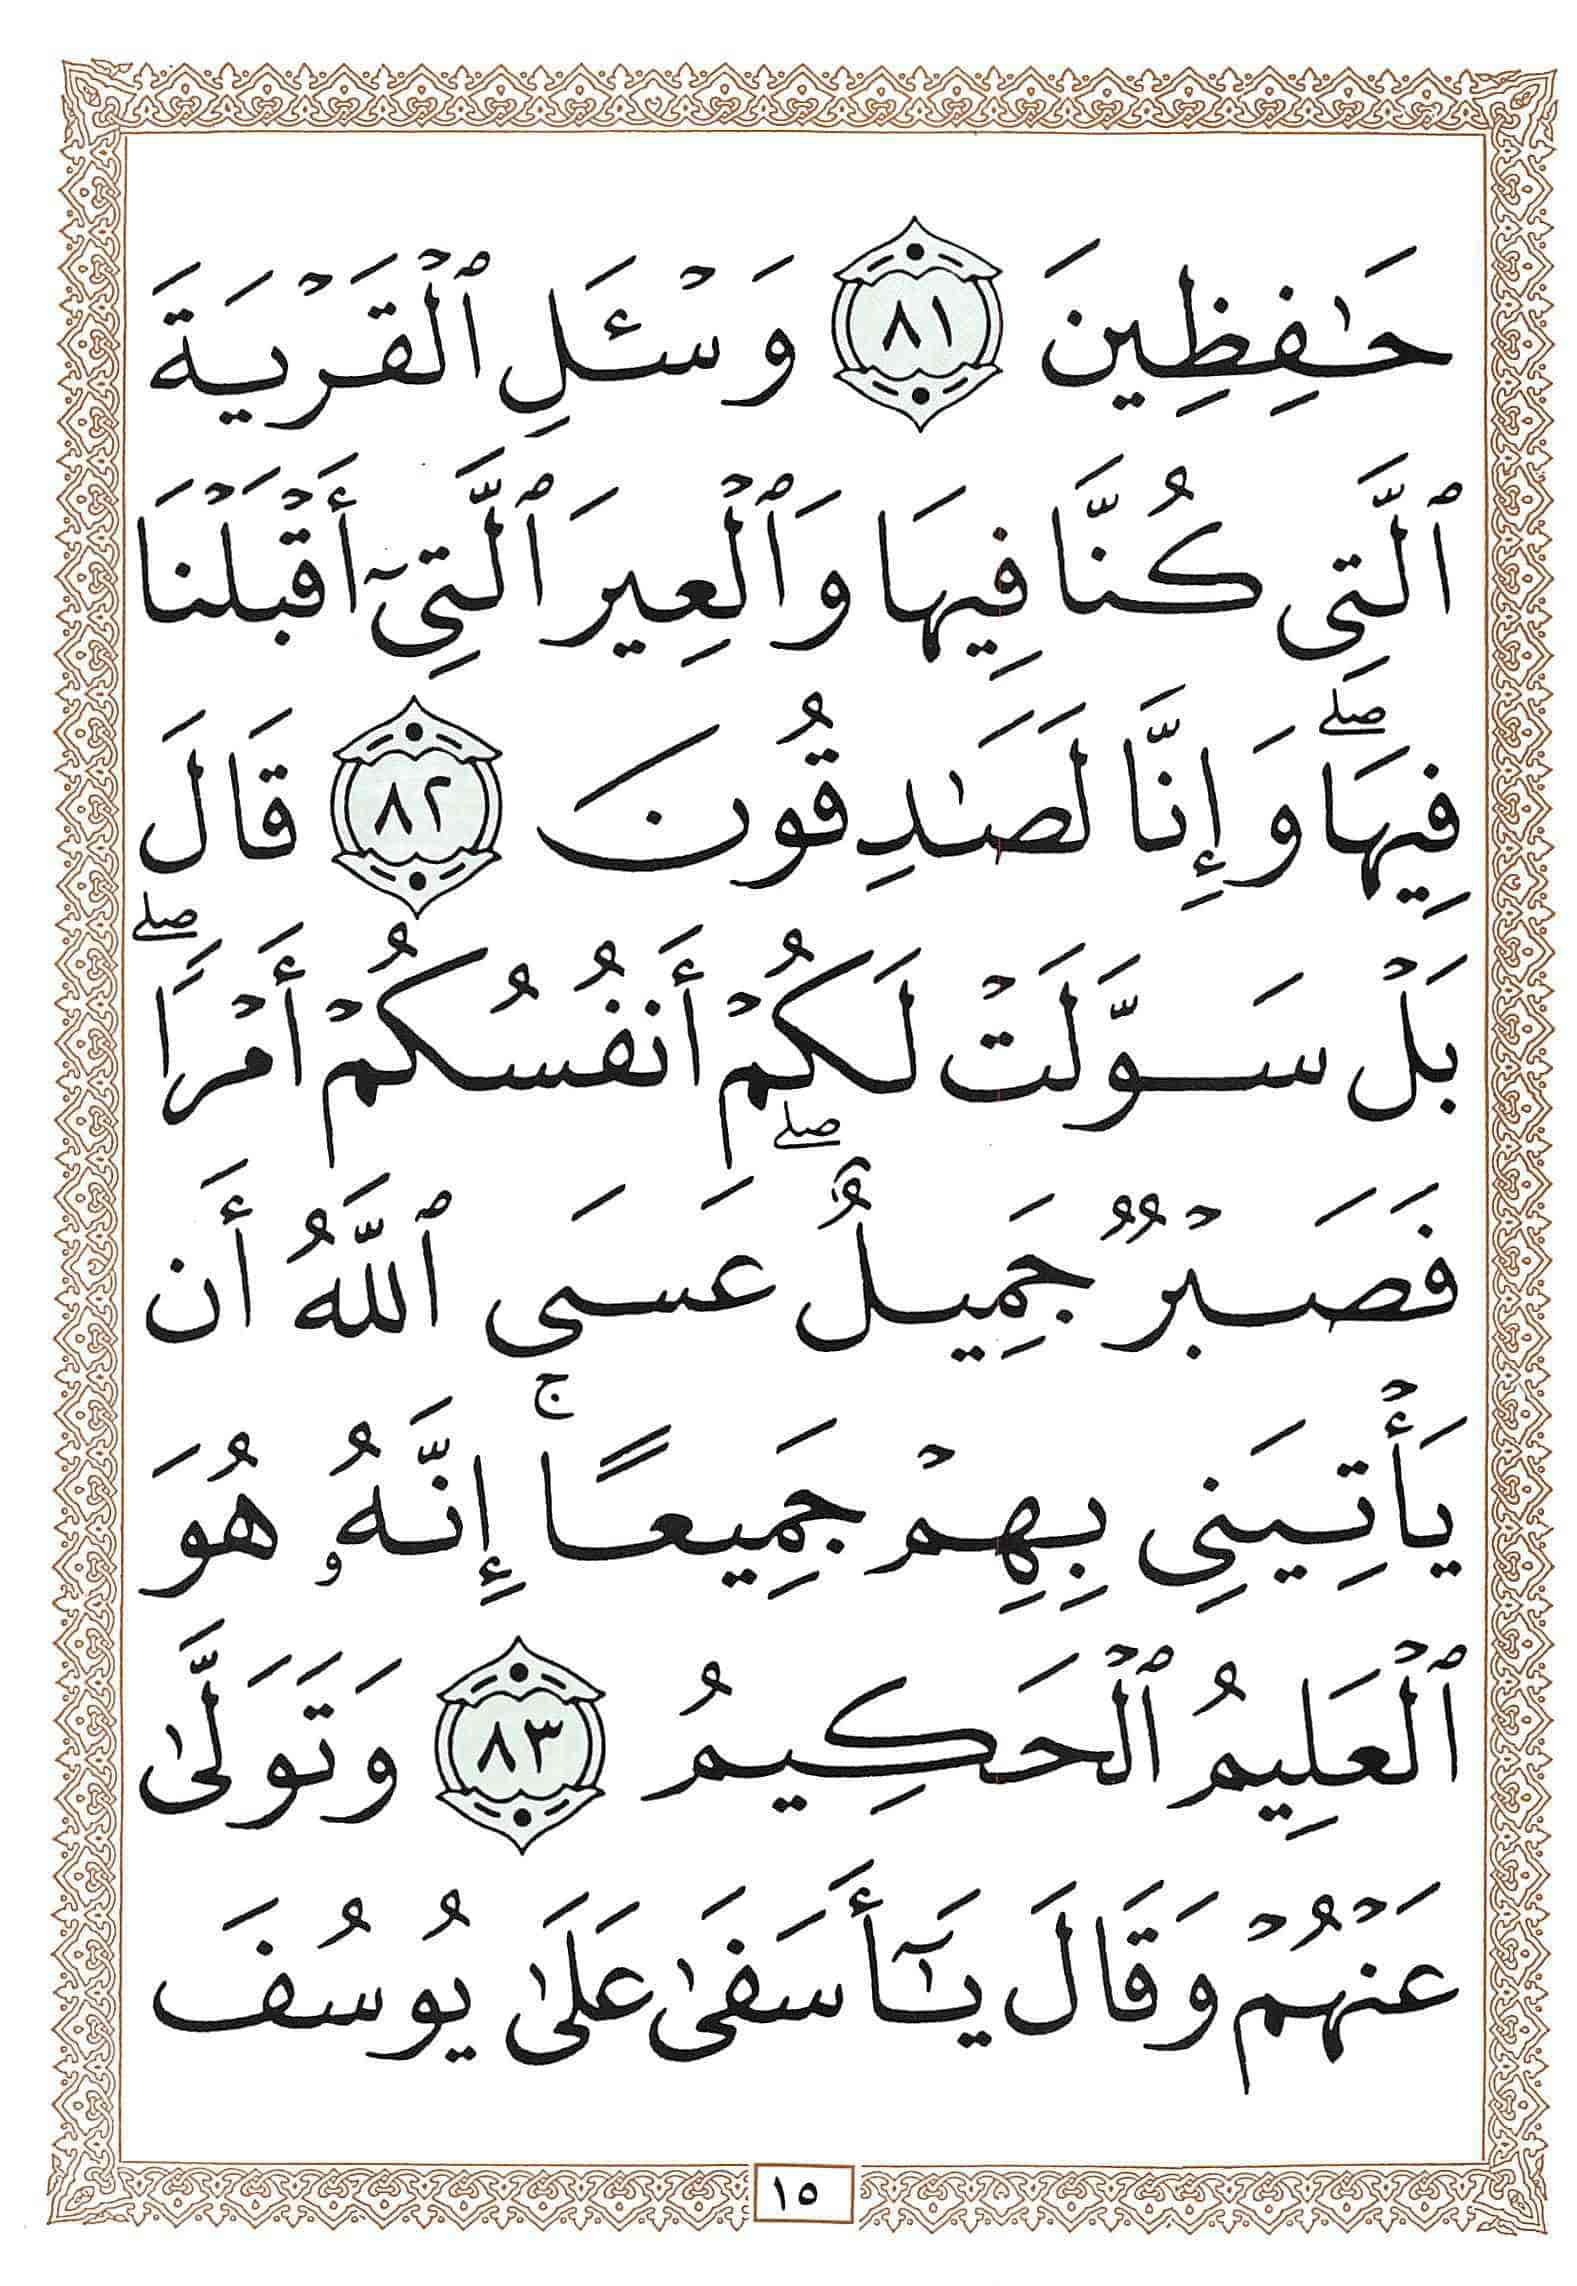 حَٰفِظِينَ ٨١ وَسْـَٔلِ ٱلْقَرْيَةَ
ٱلَّتِى كُنَّا فِيهَا وَٱلْعِيرَ ٱلَّتِىٓ أَقْبَلْنَا
فِيهَا ۖ وَإِنَّا لَصَٰدِقُونَ ٨٢ قَالَ
بَلْ سَوَّلَتْ لَكُمْ أَنفُسُكُمْ أَمْرًا ۖ
فَصَبْرٌ جَمِيلٌ ۖ عَسَى ٱللَّهُ أَن
يَأْتِيَنِى بِهِمْ جَمِيعًا ۚ إِنَّهُۥ هُوَ
ٱلْعَلِيمُ ٱلْحَكِيمُ ٨٣ وَتَوَلَّىٰ
عَنْهُمْ وَقَالَ يَٰٓأَسَفَىٰ عَلَىٰ يُوسُفَ
١٥